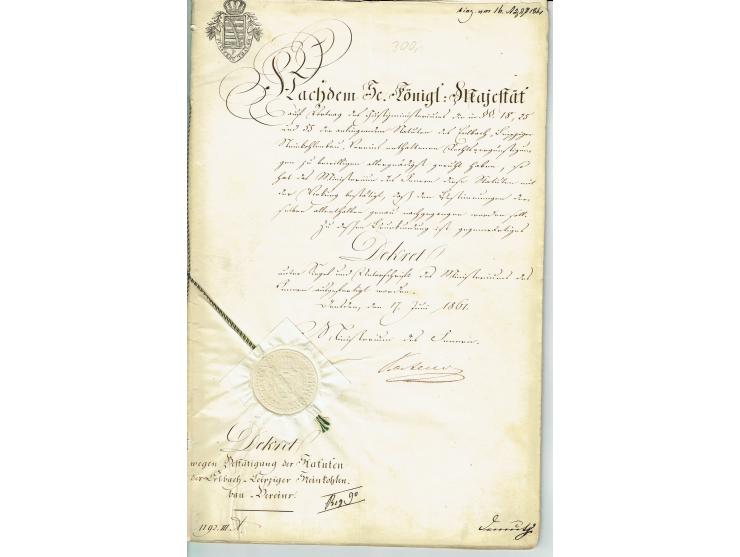 300,
Nachdem Se. Königl: Majestät
auf Vortrag des Justizministeriums die in §§. 18, 25
und 55 der anliegenden Statuten des Oelsbach-Leipziger
Steinkohlenbau-Vereins enthaltenen Rechtsvergünstigun-
gen zu bewilligen allergnädigst geruht haben, so
hat das Ministerium des Innern diese Statuten mit
der Wirkung bestätigt, daß den Bestimmungen der-
selben allenthalben genau nachgegangen werden soll.
Zu dessen Beurkundung ist gegenwärtiges
Dekret
unter Siegel und Unterschrift des Ministeriums des
Innern ausgefertigt worden.
Dresden, den 17. Juni 1861.
Ministerium des Innern.
Dekret
wegen Bestätigung der Statuten
der Leipziger Steinkohlen-
bau-Vereins.
1190. III. A